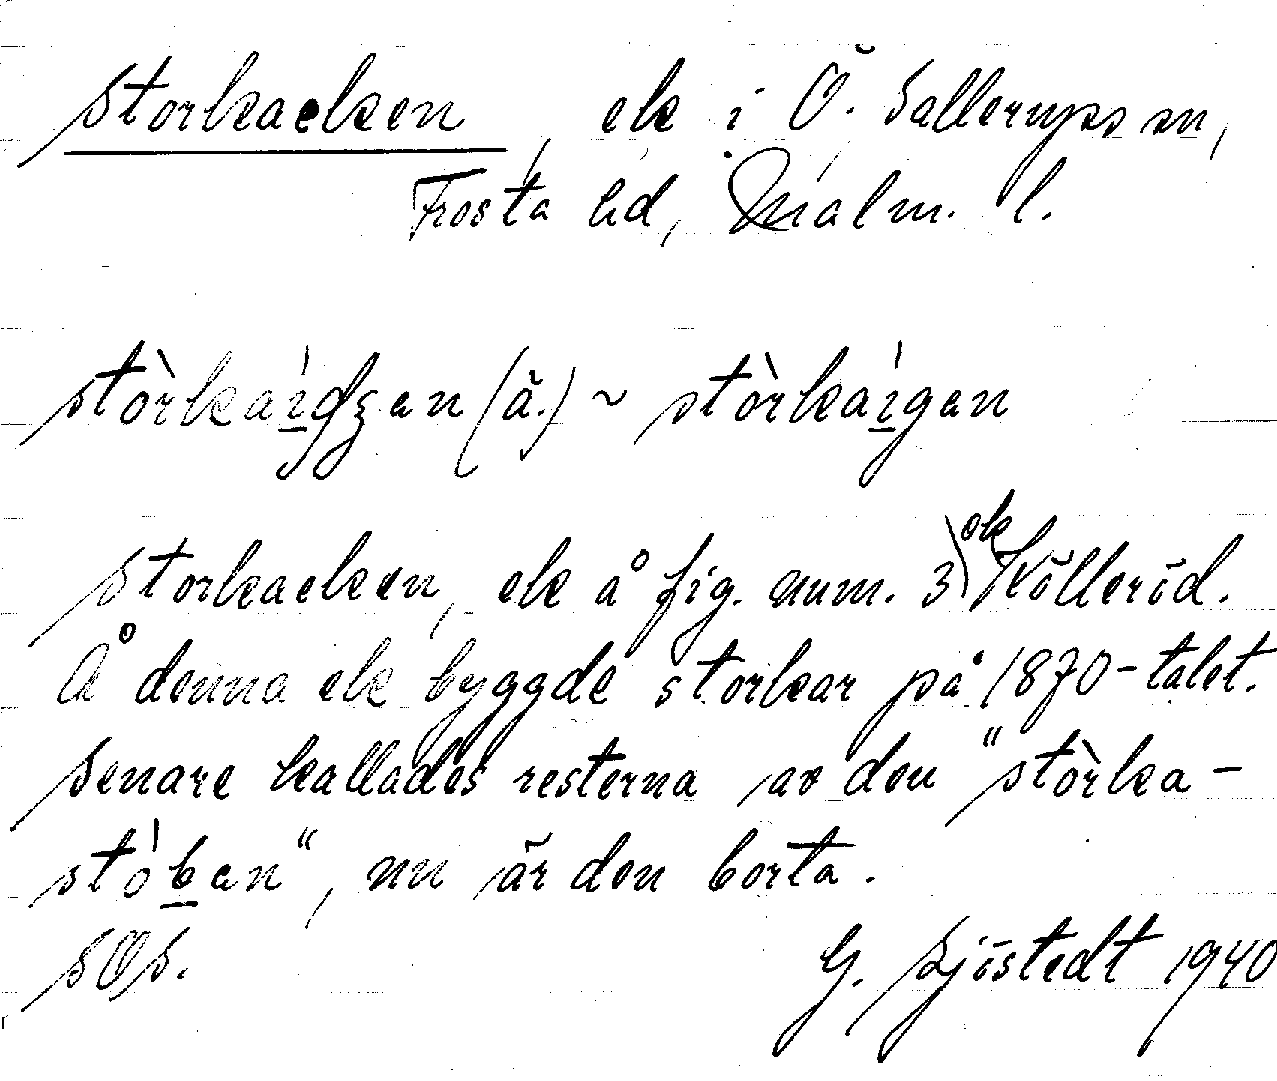 Storkaeken, ek i Ö. Sallerups sn,
Frosta hd, Malm. l.
stòrkaídzen (ä.) ~ stòrkaígen
Storkaeken, ek å fig. num. 3 ek Kölleröd.
Å denna ek byggde storkar på 1870-talet.
Senare kallades resterna av den "stòrka-
stóben", nu är den borta.
SOS.
G. Sjöstedt 1940